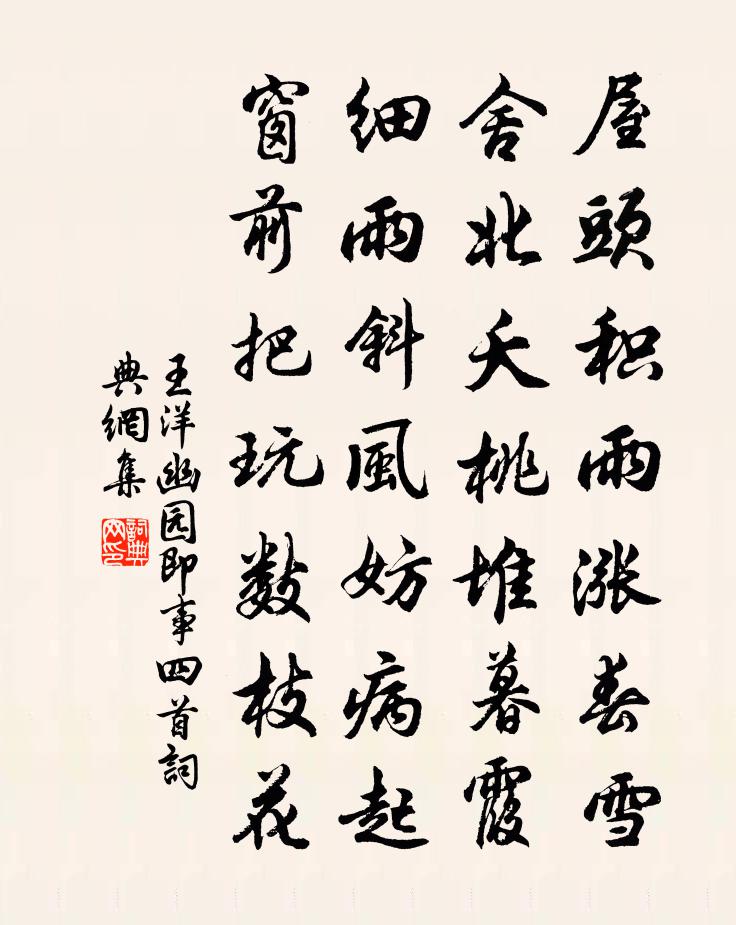 屋頭积雨漲春雪
舍北夭桃堆暮霞
细雨斜風妨病起
窗前把玩數枝花
王洋幽园即事四首詞
典網集
詞典
网印